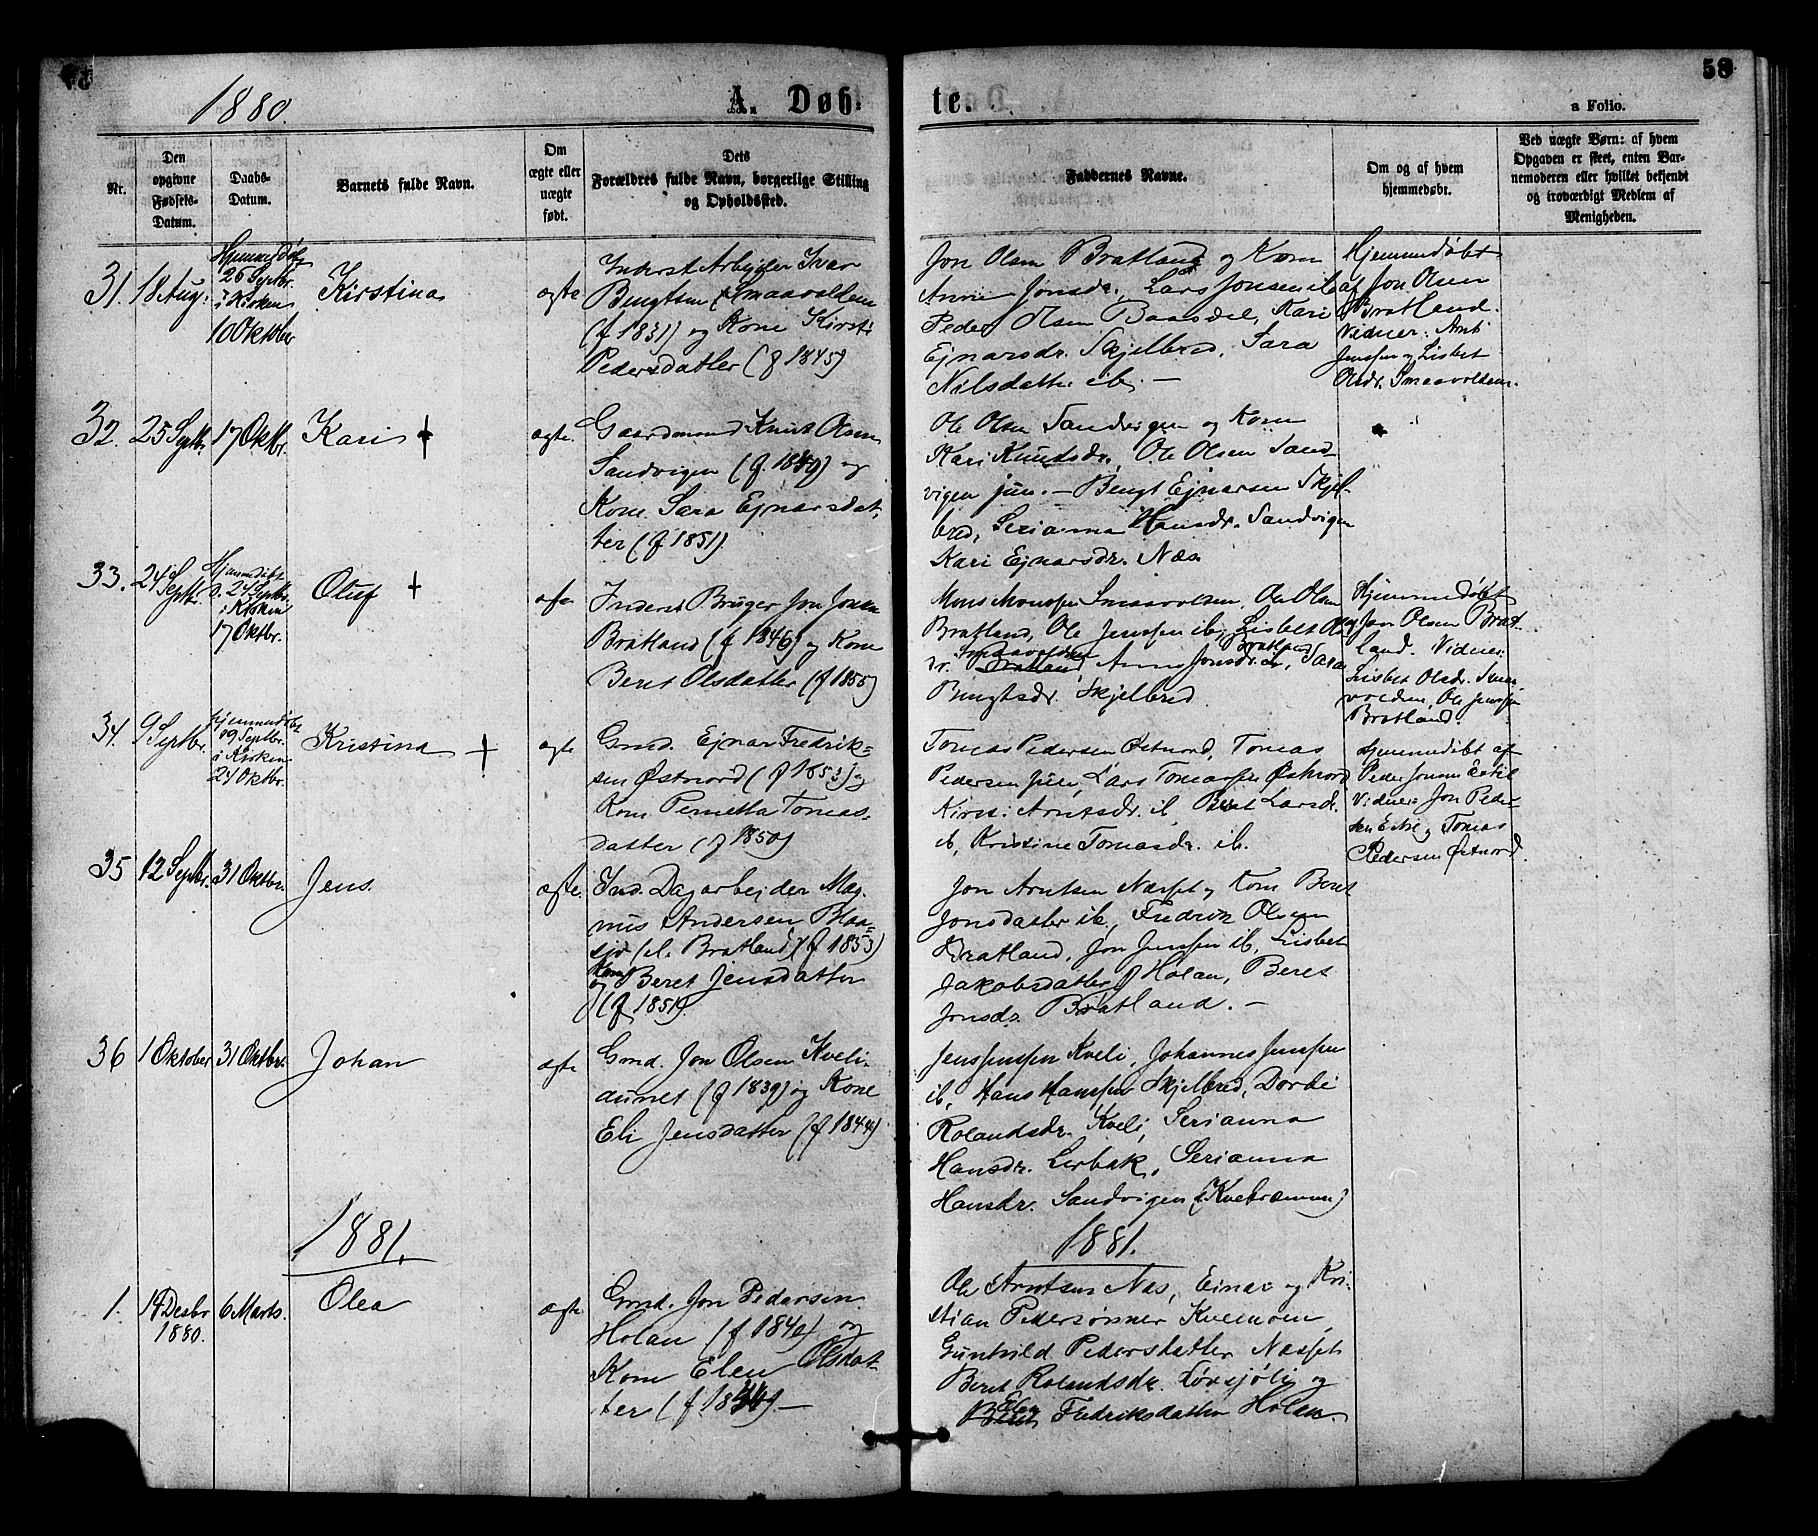 1880.
A. Døb-
te.
58
a Folio.
Nr.
Den
opgivne
Fødsels-
Datum.
Daabs-
Datum.
Barnets fulde Navn.
Om
ægte eller
uægte
født.
Dets
Forældres fulde Navn, borgerlige Stilling
og Opholdssted.
Faddernes Navne.
Om og af hvem
hjemmedøbt.
Ved uægte Børn: af hvem
Opgaven er skeet, enten Bar-
nemoderen eller hvilket bekjendt
og troværdigt Medlem af
Menigheden.
31.
18 Aug:
Hjemmedøbt
26 Septbr.
i Kirken
10 Oktober
Kirstina
ægte
Inderst Arbejder Ivar
Bengtsen Smaavolden
(f 1831) og Kone Kirsti
Pedersdatter (f 1845)
Jon Olsen Bratland og Kone
Anne Jonsdr., Lars Jonsen ib
Peder Olsen Baasdal, Kari
Ejnarsdr. Skjelbred, Sara
Nilsdatter ib. —
Hjemmedøbt
af Jon Olsen
Bratland.
Vidner: Arnt
Jenssen og Lisbet
Olsdr. Smaavolden.
32.
25 Septb.
17 Oktbr.
Kari †
ægte.
Gaardmand Knut Olsen
Sandvigen (f. 1849) og
Kone Sara Ejnarsdat-
ter (f 1851).
Ole Olsen Sandvigen og Kone
Kari Knudsdr., Ole Olsen Sand-
vigen jun. — Bengt Ejnarsen Skjel-
bred, Serianna Hansdr. Sandvigen
Kari Ejnarsdr. Næs
33.
24 Septb.
Hjemmedøbt
d. 24 Septbr.
i Kirken
17 Oktbr.
Oluf †
ægte
Inderst Bruger Jon Jonsen
Bratland (f 1846) og Kone
Beret Olsdatter (f 1855)
Mons Monssen Smaavolden, Ole Olsen
Bratland, Ole Jenssen ib, Lisbet Ols-
dr. Smaavolden, Anne Jonsdr. Bratland, Sara
Bengtsdr. Skjelbred
Hjemmedøbt
af Jon Olsen Brat-
land. Vidner:
Lisbet Olsdr. Smaa-
volden, Ole Jenssen
Bratland.
34.
9 Septbr.
Hjemmedøbt
09 Septbr.
i Kirken
24 Oktbr.
Kristina †
ægte
Gmd. Ejnar Fredrik-
sen Østnord (f 1853) og
Kone Pernetta Tomas-
datter (f 1850)
Tomas Pedersen Østnord, Tomas
Pedersen jun, Lars Tomassen Østnord
Kirsti Arntsdr. ib, Beret Larsdr.
ib, Kristine Tomasdr. ib.
Hjemmedøbt af
Peder Jonsen Estil
Vidner: Jon Peder-
sen Estil og Tomas
Pedersen Østnord.
35
12 Septbr.
31 Oktbr.
Jens.
ægte.
Ind. Dagarbejder Mag-
nus Andersen Blaa-
sjø (el. Bratland) (f 1853)
og Kone Beret Jensdatter
(f 1851).
Jon Arntsen Næsset og Kone Beret
Jonsdatter ib, Fredrik Olsen
Bratland, Jon Jenssen ib, Lisbet
Jakobsdatter Holan, Beret
Jonsdr. Bratland. —
36
1 Oktober
31 Oktbr.
Johan
ægte
Gmd. Jon Olsen Kveli-
aunet (f 1839) og Kone
Eli Jensdatter (f 1844)
Jens Jenssen Kveli, Johannes Jenssen
ib, Hans Hanssen Skjelbred, Dordi
Rolandsdr. Kveli, Serianna
Hansdr. Lerbak, Serianna
Hansdr. Sandvigen
1881.
1881.
1.
14 Desbr
1880.
6 Marts.
Olea
ægte
Gmd. Jon Pedersen
Holan (f 1840) og
Kone Elen Olsdat-
ter (f. 1844) —
Ole Arntsen Næs, Einar og Kri-
stian Pedersønner Kvemoen,
Gunhild Pedersdatter Næsset
Beret Rolandsdr. Løvsjølig og
Elen Fredriksdatter Holan.